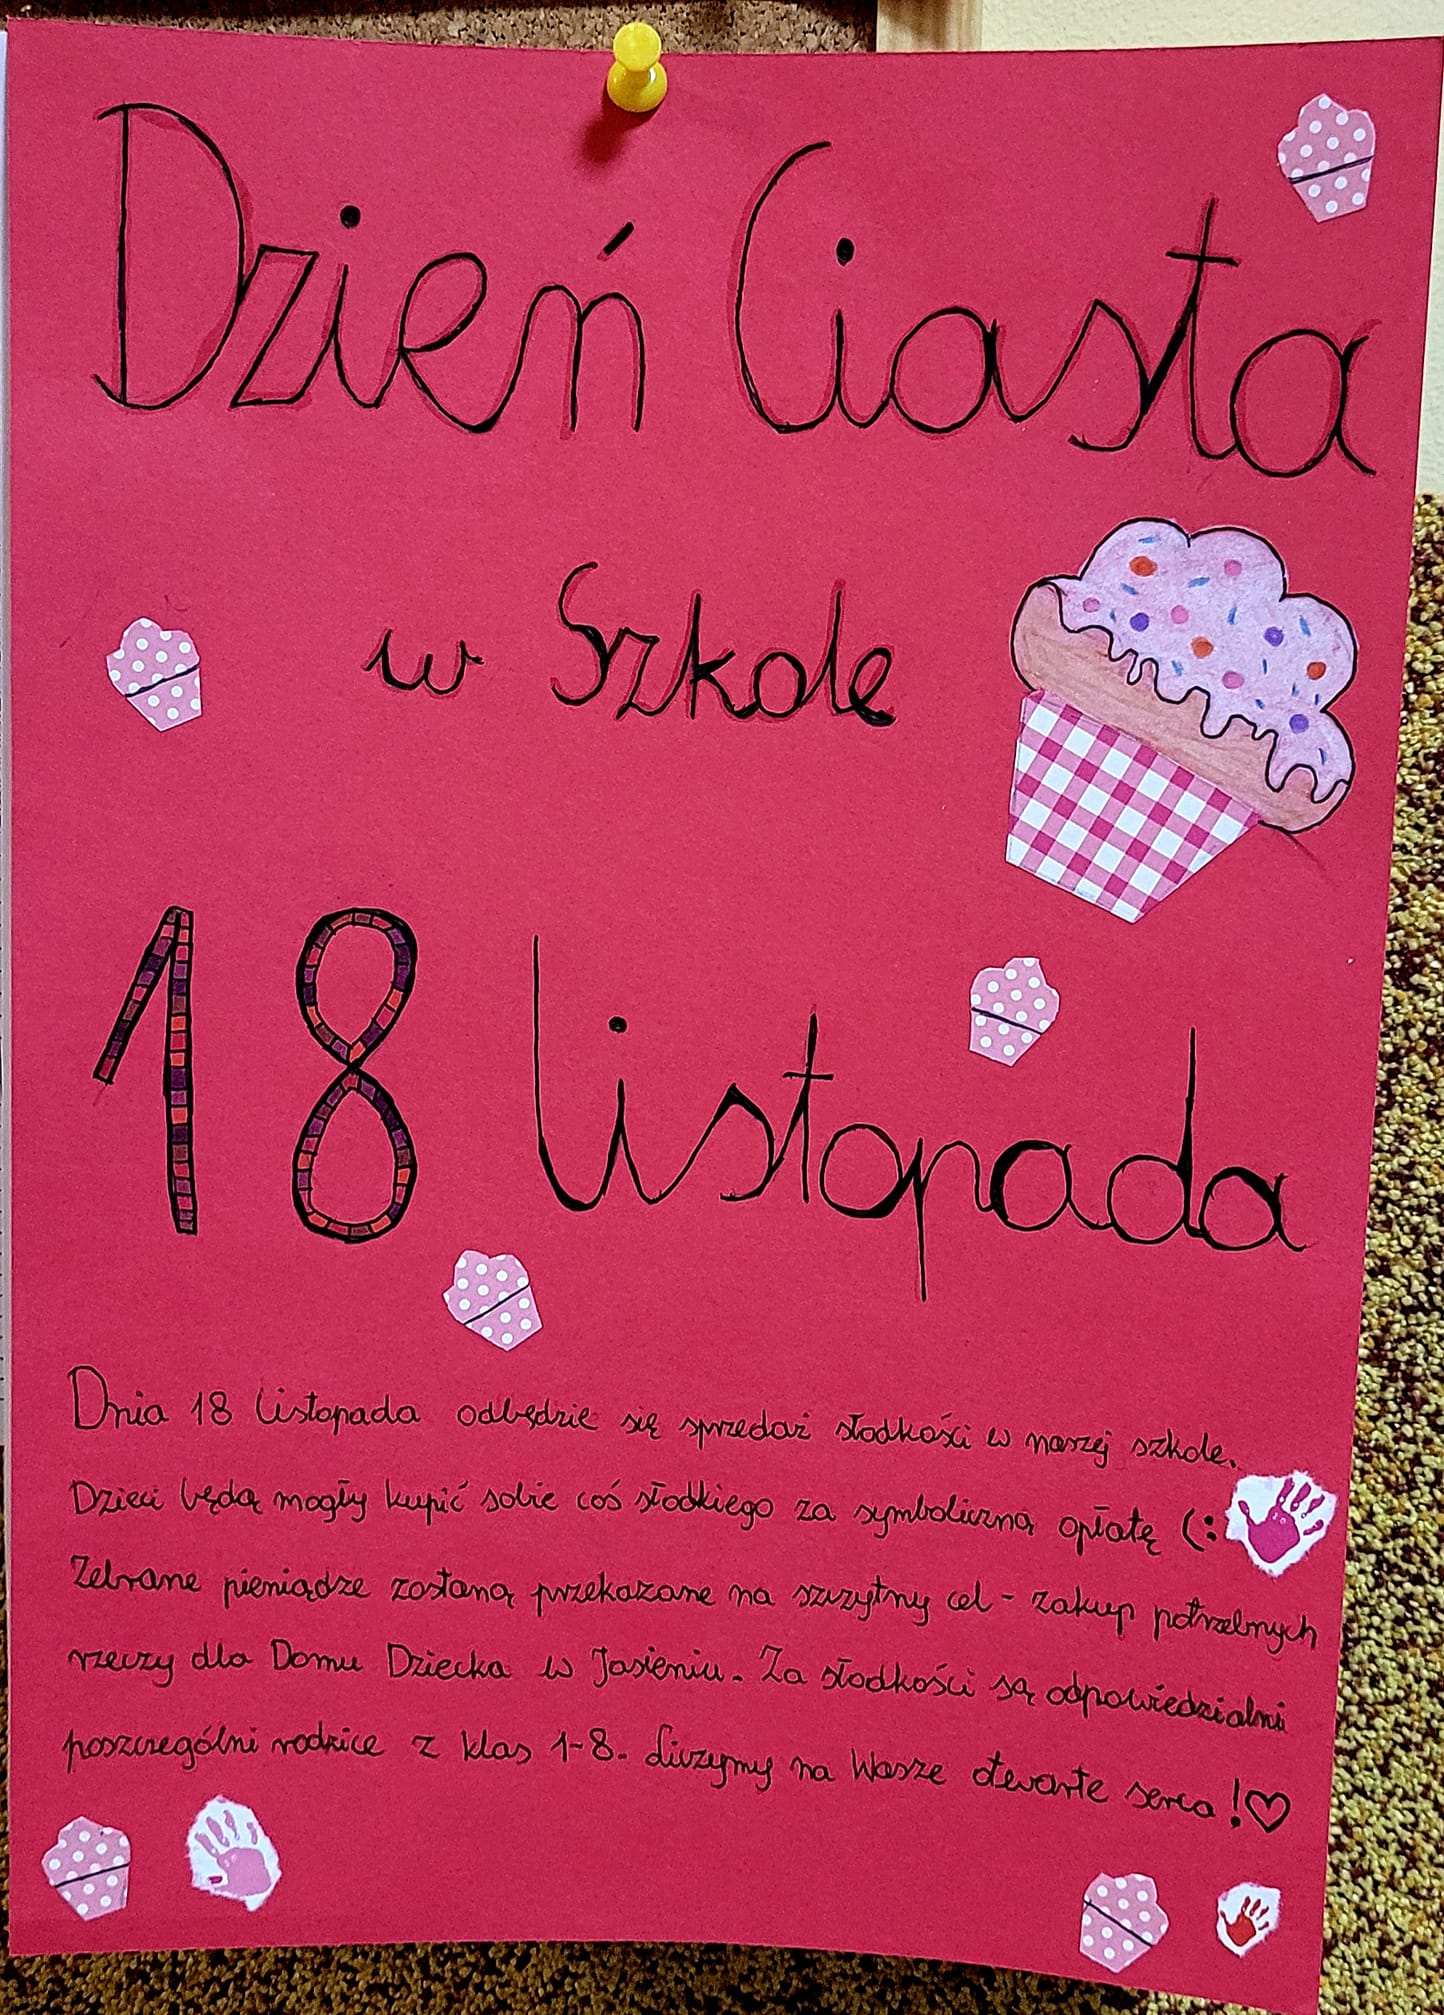 Dzień Ciasta
w Szkole
18 listopada
Dnia 18 listopada odbędzie się sprzedaż słodkości w naszej szkole.
Dzieci będą mogły kupić sobie coś słodkiego za symboliczną opłatę (:
Zebrane pieniądze zostaną przekazane na szczytny cel - zakup potrzebnych
rzeczy dla Domu Dziecka w Jasieniu. Za słodkości są odpowiedzialni
poszczególni rodzice z klas 1-8. Liczymy na Wasze otwarte serca!♡